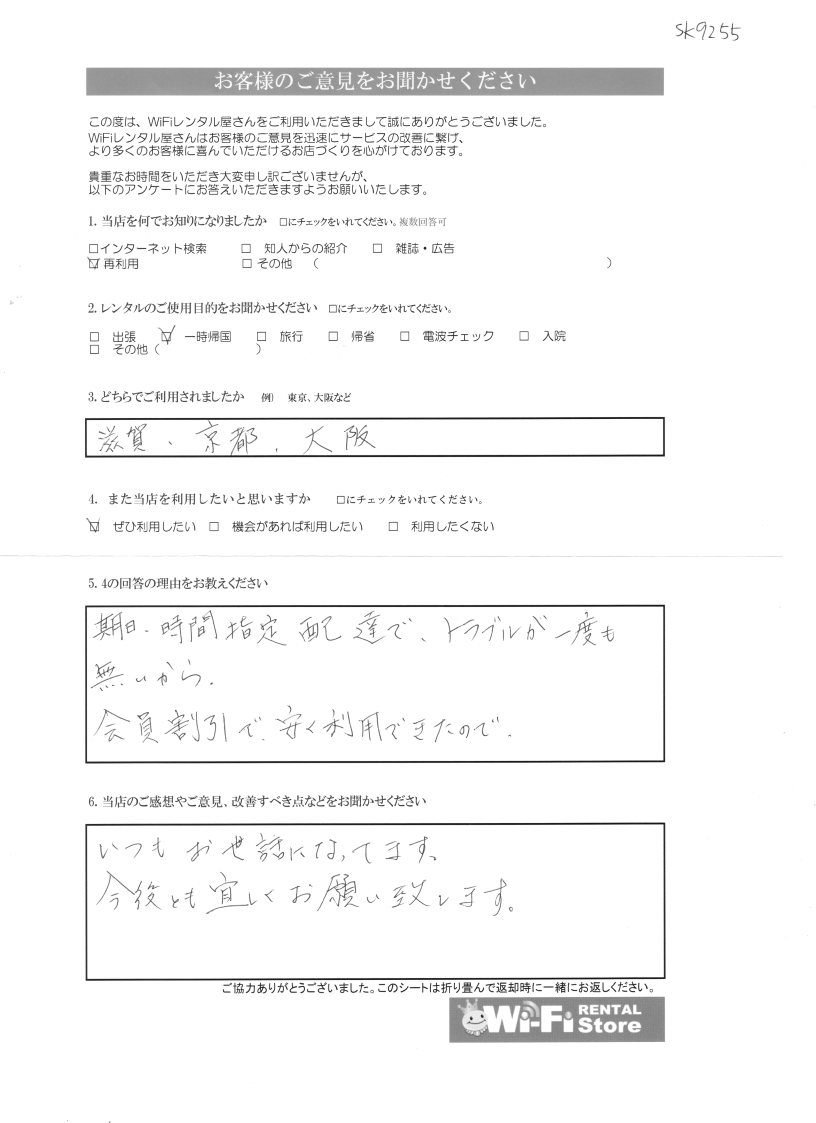 SK9255
お客様のご意見をお聞かせください
この度は、WiFiレンタル屋さんをご利用いただきまして誠にありがとうございました。
WiFiレンタル屋さんはお客様のご意見を迅速にサービスの改善に繋げ、
より多くのお客様に喜んでいただけるお店づくりを心がけております。
貴重なお時間をいただき大変申し訳ございませんが、
以下のアンケートにお答えいただきますようお願いいたします。
1. 当店を何でお知りになりましたか □にチェックをいれてください。複数回答可
□インターネット検索 □ 知人からの紹介 □ 雑誌・広告
☑ 再利用 □ その他 ( )
2. レンタルのご使用目的をお聞かせください □にチェックをいれてください。
□ 出張 ☑ 一時帰国 □ 旅行 □ 帰省 □ 電波チェック □ 入院
□ その他 ( )
3. どちらでご利用されましたか 例) 東京、大阪など
滋賀、京都、大阪
4. また当店を利用したいと思いますか □にチェックをいれてください。
☑ ぜひ利用したい □ 機会があれば利用したい □ 利用したくない
5. 4の回答の理由をお教えください
期日、時間指定配達で、トラブルが一度も
無いから。
会員割引で、安く利用できたので。
6. 当店のご感想やご意見、改善すべき点などをお聞かせください
いつもお世話になってます。
今後とも宜しくお願い致します。
ご協力ありがとうございました。このシートは折り畳んで返却時に一緒にお返しください。
Wi-Fi RENTAL
Store